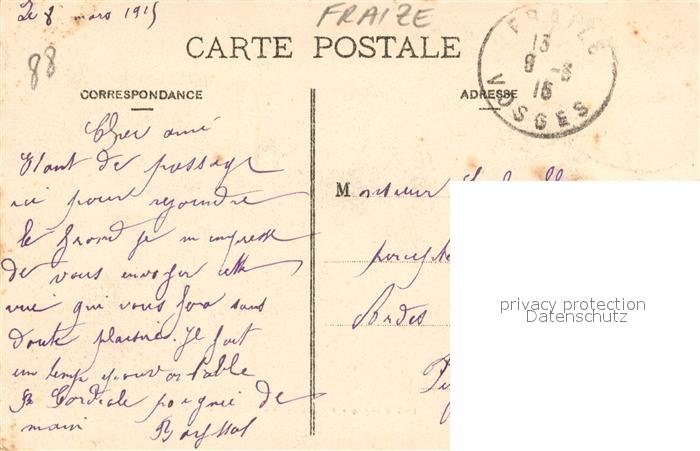 Le 8 mars 1915
FRAIZE
88
CARTE POSTALE
FRAIZE
13
9 -3
15
VOSGES
CORRESPONDANCE
ADRESSE
Cher ami
Etant de passage
ici pour rejoindre
le front je m'empresse
de vous envoyer cette
vue qui vous fera sans
doute plaisir. Il fait
un temps épouvantable
Cordiale poignée de
main
Monsieur
Bordes
privacy protection
Datenschutz